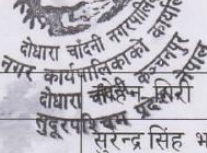 दोधारा चाँदनी नगरपालिका
नगर कार्यपालिकाको कार्यालय
दोधारा चाँदनी, कञ्चनपुर
सुदूरपश्चिम प्रदेश, नेपाल
गिरी
सुरेन्द्र सिंह